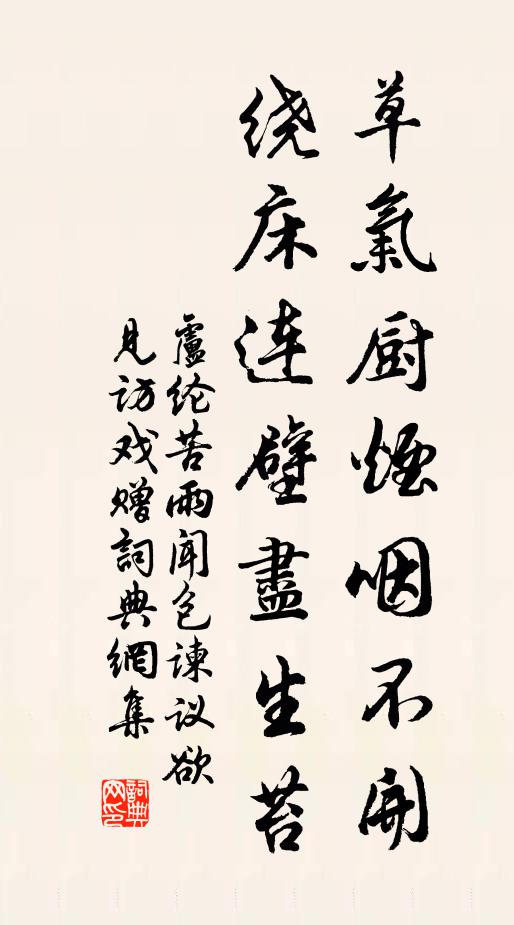 草氣厨煙咽不開
绕床连壁盡生苔
盧纶苦雨闻包谏议欲
见访戏赠詞典網集
詞典网印